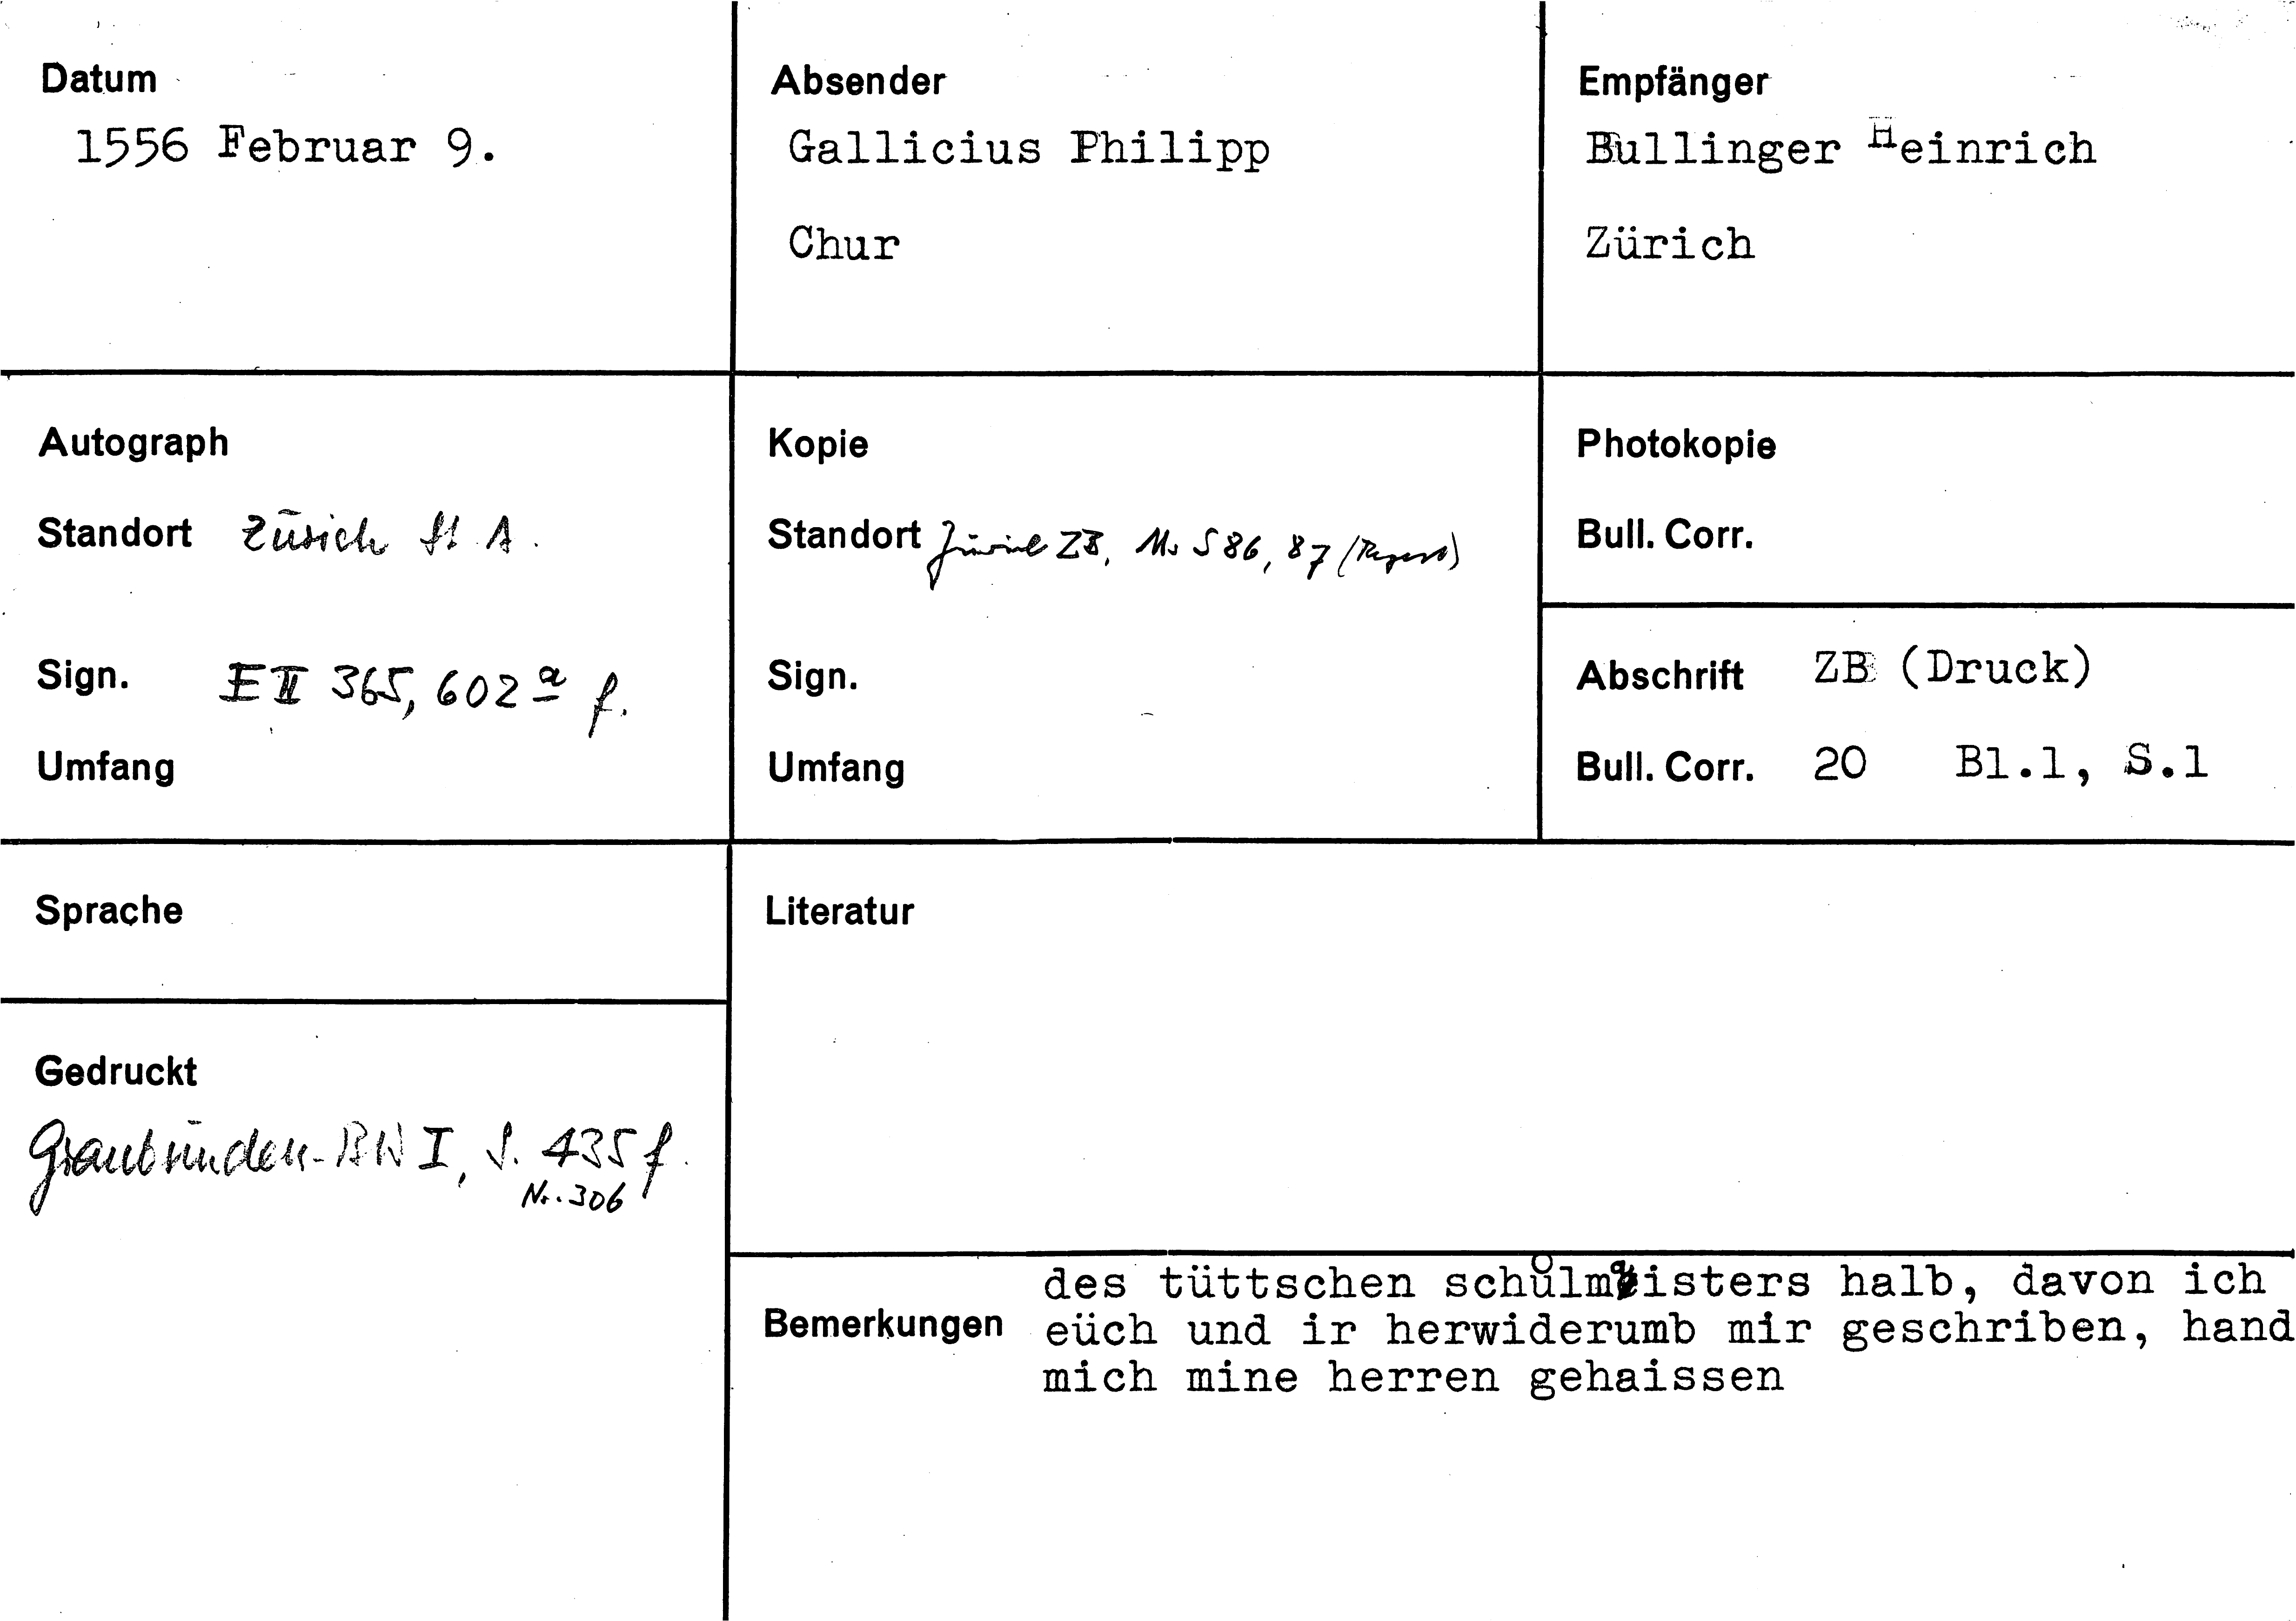 Datum
1556 Februar 9.
Absender
Gallicius Philipp
Chur
Empfänger
Bullinger Heinrich
Zürich
Autograph
Standort Zürich St. A.
Sign. E II 365, 602 a f.
Umfang
Kopie
Standort Zürich ZB, Ms S 86, 87 (Regest)
Sign.
Umfang
Photokopie
Bull. Corr.
Abschrift ZB (Druck)
Bull. Corr. 20 Bl.1, S.1
Sprache
Literatur
Gedruckt
Graubünden-BW I, S. 435 f.
Nr. 306
Bemerkungen
des tüttschen schůlmaisters halb, davon ich
eüch und ir herwiderumb mir geschriben, hand
mich mine herren gehaissen